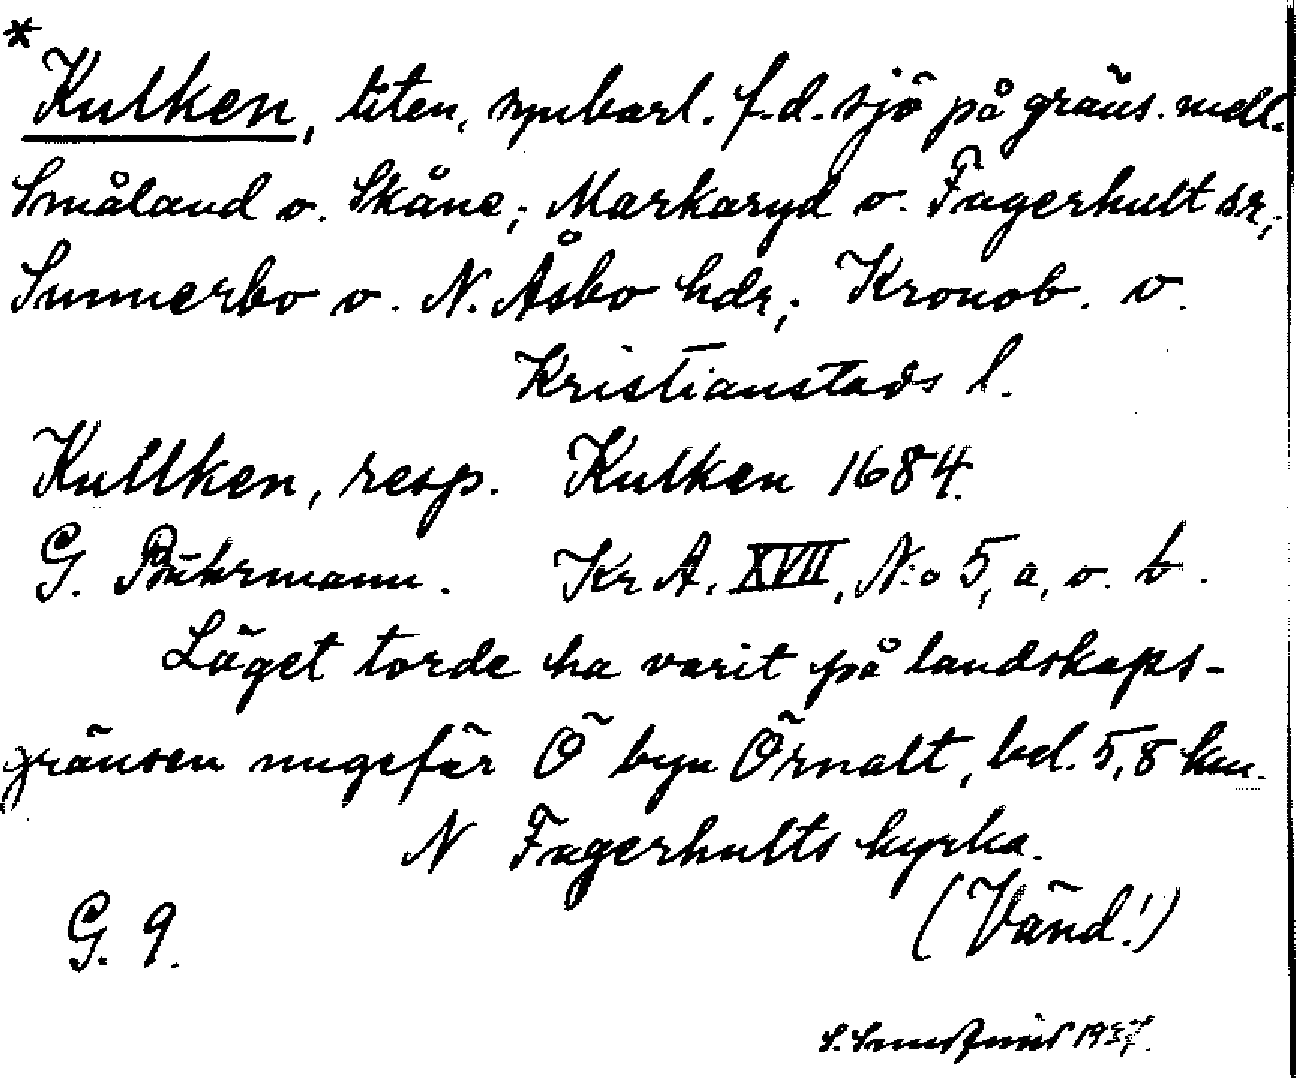 *
Kulken, liten, synbarl. f.d. sjö på gräns. mell.
Småland o. Skåne; Markaryd o. Fagerhult sr;
Sunnerbo o. N. Åsbo hdr; Kronob. o.
Kristianstads l.
Kullken, resp. Kulken 1684.
G. Buhrmann. Kr A. XVII, N:o 5, a, o. b.
Läget torde ha varit på landskaps-
gränsen ungefär Ö byn Örnalt, bel. 5,8 km.
N Fagerhults kyrka.
(Vänd!)
G. 9.
S. 1937.